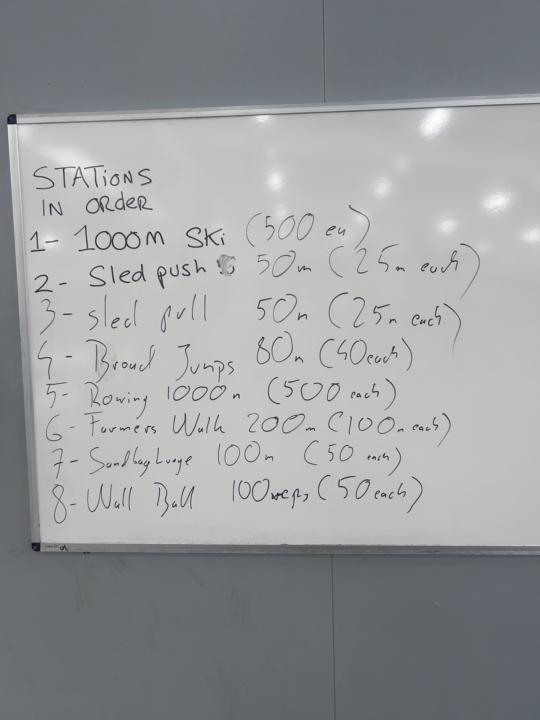 STATIONS
IN ORDER
1- 1000m Ski (500 ea)
2- Sled push 50m (25m each)
3- sled pull 50m (25m each)
4- Broad Jumps 80m (40 each)
5- Rowing 1000m (500 each)
6- Farmers Walk 200m (100m each)
7- Sandbag Lunge 100m (50 each)
8- Wall Ball 100 reps (50 each)